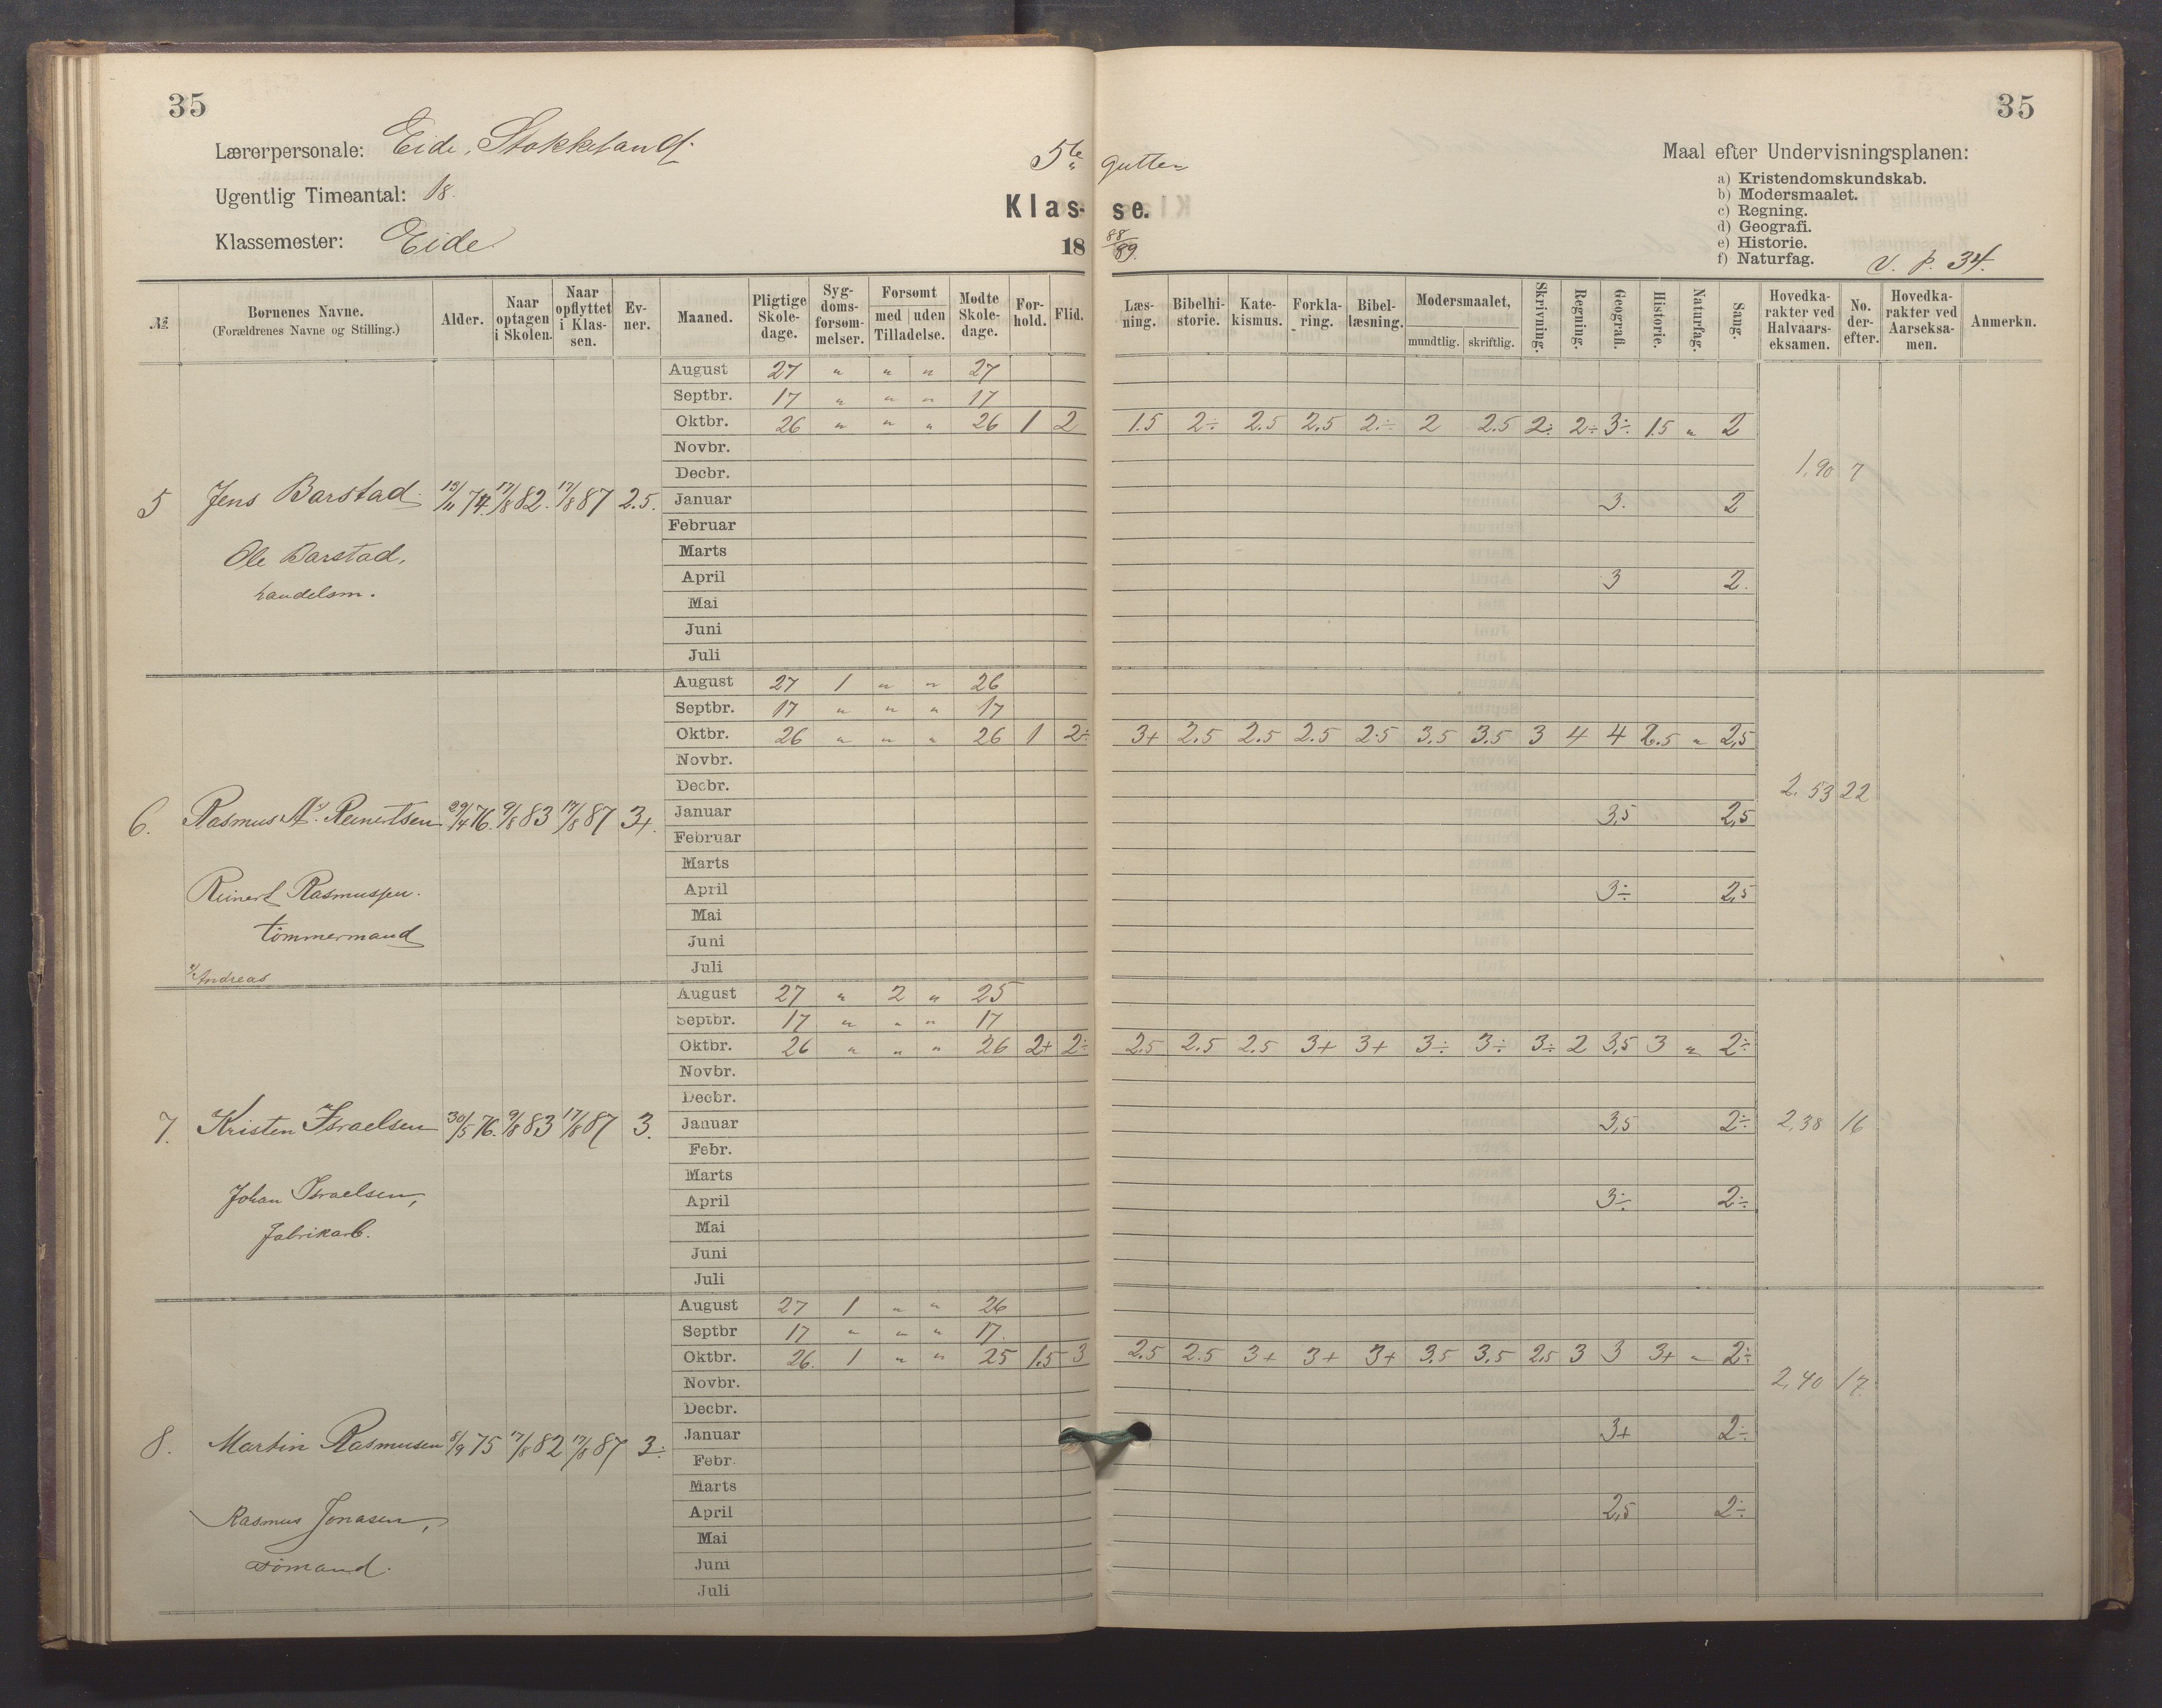 35
35
Lærerpersonale: Eide, Stokkeland.
Ugentlig Timeantal: 18.
Klassemester: Eide
5te gutter
Klas- se.
18 88/89.
Maal efter Undervisningsplanen:
a) Kristendomskundskab.
b) Modersmaalet.
c) Regning.
d) Geografi.
e) Historie.
f) Naturfag.
V. p. 34.
№ | Børnenes Navne. (Forældrenes Navne og Stilling.) | Alder. | Naar optagen i Skolen. | Naar opflyttet i Klassen. | Ev-ner. | Maaned. | Pligtige Skole-dage. | Syg-doms-forsøm-melser. | Forsømt med uden Tilladelse. | Mødte Skole-dage. | For-hold. | Flid. | Læs-ning. | Bibelhi-storie. | Kate-kismus. | Forkla-ring. | Bibel-læsning. | Modersmaalet, mundtlig. skriftlig. | Skrivning. | Regning. | Geografi. | Historie. | Naturfag. | Sang. | Hovedka-rakter ved Halvaars-eksamen. | No. der-efter. | Hovedka-rakter ved Aarseksa-men. | Anmerkn.
August 27 " " " 27
Septbr. 17 " " " 17
Oktbr. 26 " " " 26 1 2 1.5 2÷ 2.5 2.5 2÷ 2 2.5 2÷ 2÷ 3÷ 1.5 " 2
Novbr.
Decbr. 1,90 7
5 Jens Barstad. 19/11 74. 17/8 82. 17/8 87 2.5. Januar 3. 2
Februar
Marts
Ole Barstad, April 3 2.
handelsm. Mai
Juni
Juli
August 27 1 " " 26
Septbr. 17 " " " 17
Oktbr. 26 " " " 26 1 2÷ 3+ 2.5 2.5 2.5 2.5 3.5 3.5 3 4 4 2.5 " 2,5
Novbr.
Decbr. 2.53 22
6. Rasmus A. Reinertsen 29/4 76. 9/8 83 17/8 87 3+. Januar 3,5 2,5
Februar
Marts
Reinert Rasmussen. April 3÷ 2,5
tömmermand Mai
Juni
Andreas Juli
August 27 " 2 " 25
Septbr. 17 " " " 17
Oktbr. 26 " " " 26 2+ 2÷ 2.5 2.5 2.5 3+ 3+ 3÷ 3÷ 3÷ 2 3,5 3 " 2÷
Novbr.
Decbr.
7. Kristen Israelsen 30/5 76. 9/8 83 17/8 87 3. Januar 3,5 2÷ 2,38 16
Febr.
Marts
Johan Israelsen, April 3÷ 2÷
fabrikarb. Mai
Juni
Juli
August 27 1 " " 26
Septbr 17 " " " 17.
Oktbr. 26. 1 " " 25 1.5 3 2.5 2.5 3+ 3+ 3+ 3,5 3,5 2,5 3 3 3+ " 2÷
Novbr. 2,40 17.
Decbr.
8. Martin Rasmusen 8/9 75 17/8 82 17/8 87 3÷ Januar 3+ 2÷
Febr.
Marts
Rasmus Jonasen, April 2,5 2÷
sömand. Mai
Juni
Juli